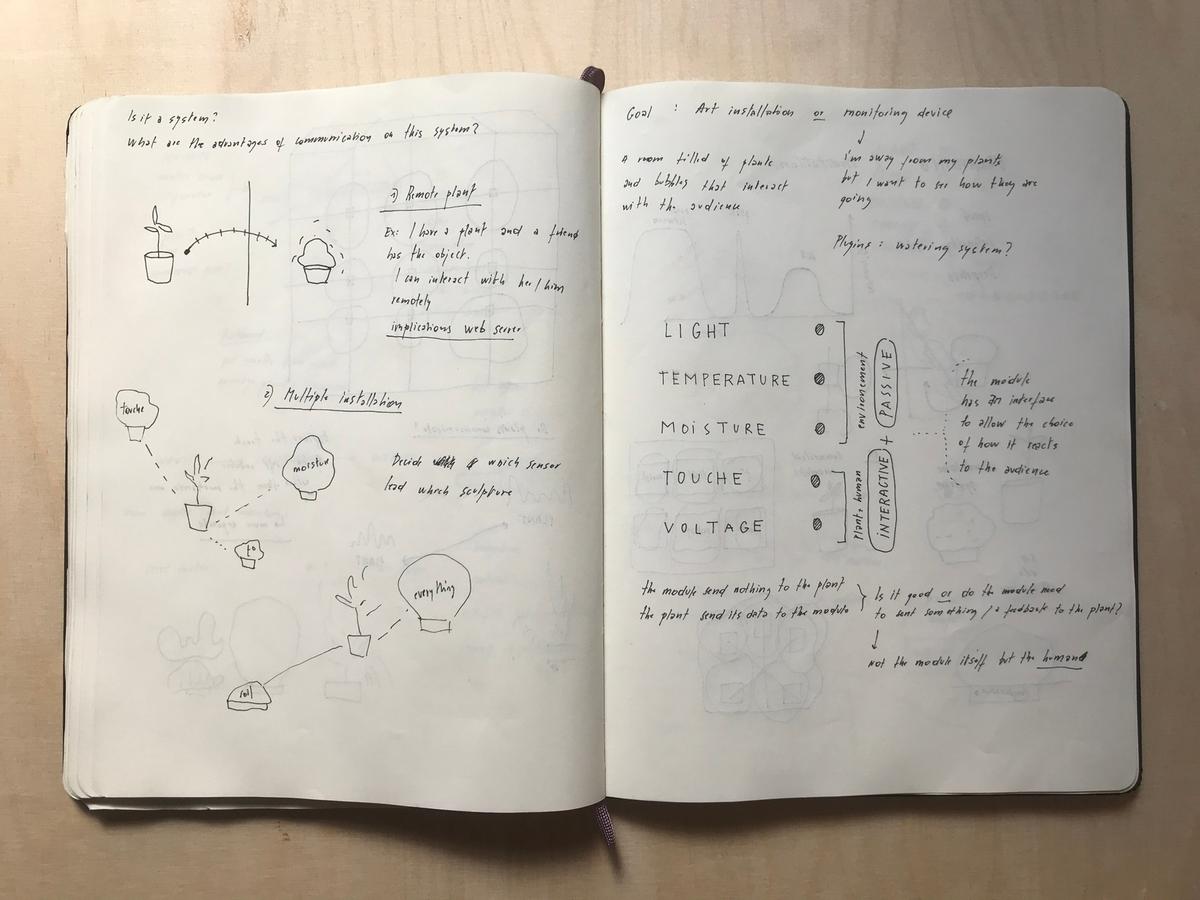 Is it a system?
What are the advantages of communication on this system?
1) Remote plant
Ex: I have a plant and a friend
has the object.
I can interact with her/him
remotely
implications web server
2) Multiple installation
touche
moisture
Decide which sensor
lead which sculpture
t°
everything
soil
Goal : Art installation or monitoring device
A room filled of plants
and bubbles that interact
with the audience
I'm away from my plants
but I want to see how they are
going
Plugins : watering system?
LIGHT
TEMPERATURE
MOISTURE
TOUCHE
VOLTAGE
environnement
PASSIVE
+
plant + human
INTERACTIVE
the module
has an interface
to allow the choice
of how it reacts
to the audience
the module send nothing to the plant
the plant send its data to the module
Is it good or do the module
to sent something / a feedback to the plant?
Not the module itself but the human